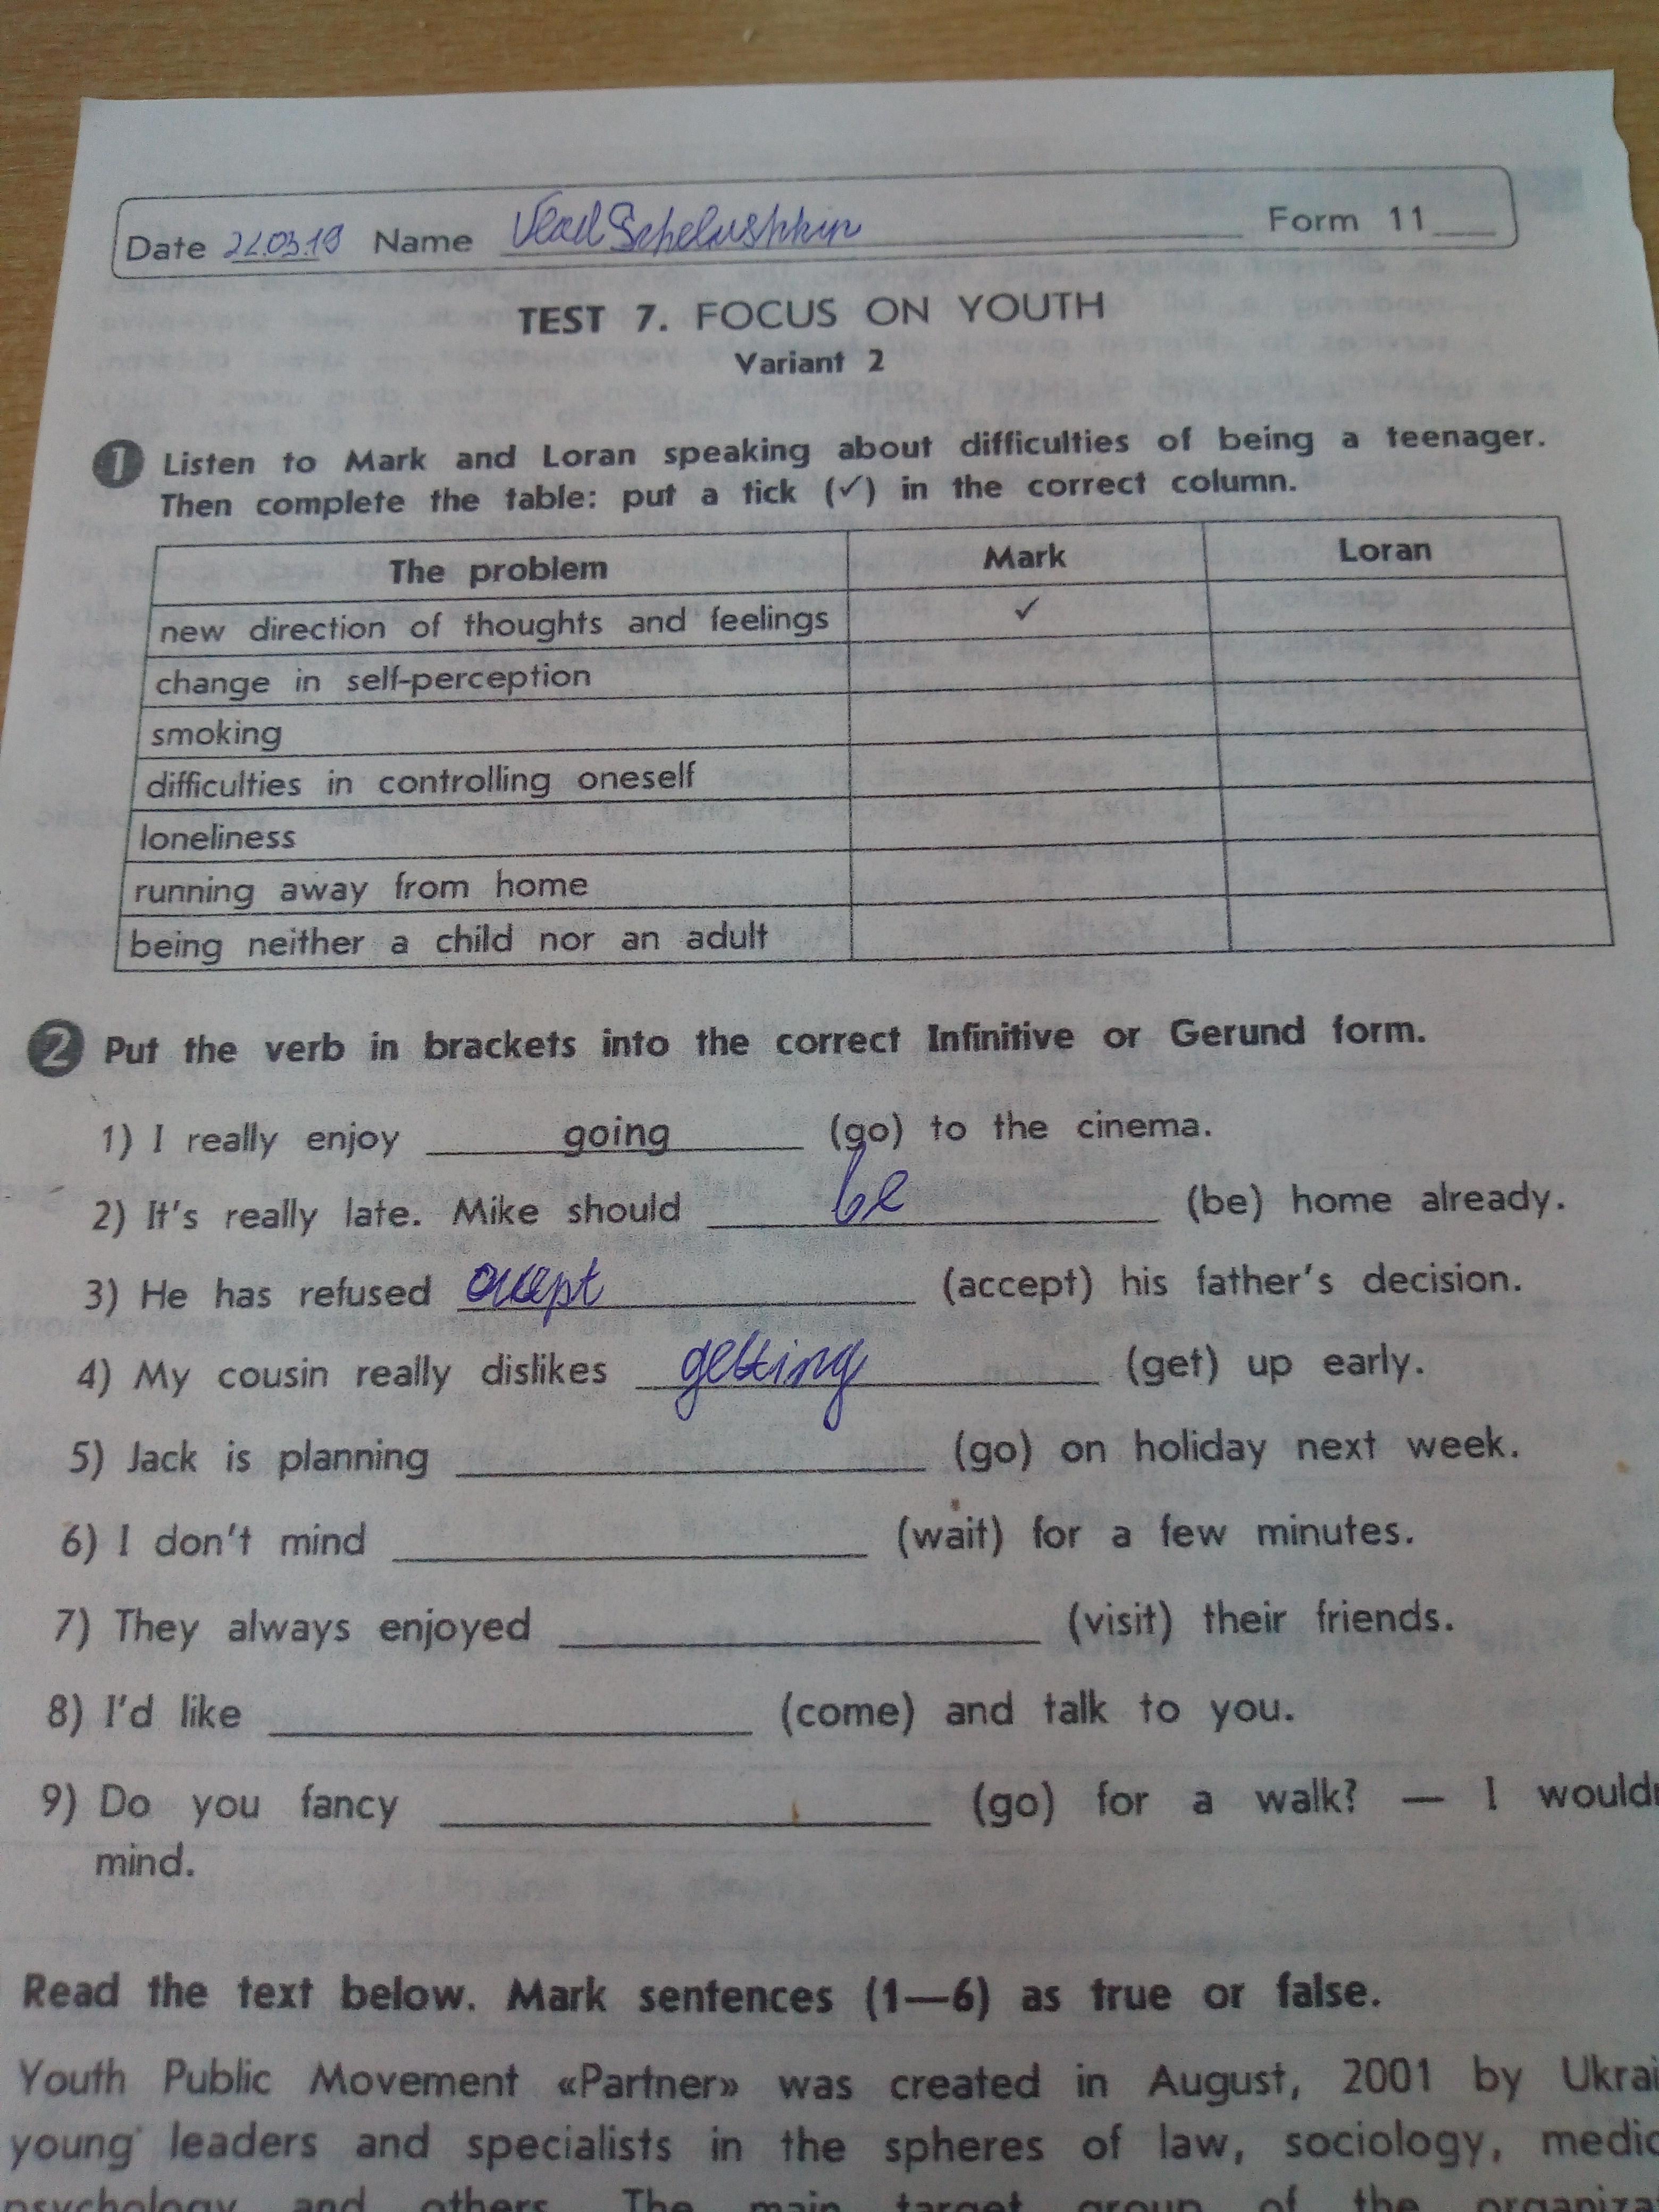 Date 22.03.19 Name Vlad Schelushkin Form 11
TEST 7. FOCUS ON YOUTH
Variant 2
1 Listen to Mark and Loran speaking about difficulties of being a teenager.
Then complete the table: put a tick (✓) in the correct column.
The problem Mark Loran
new direction of thoughts and feelings ✓
change in self-perception
smoking
difficulties in controlling oneself
loneliness
running away from home
being neither a child nor an adult
2 Put the verb in brackets into the correct Infinitive or Gerund form.
1) I really enjoy going (go) to the cinema.
2) It's really late. Mike should be (be) home already.
3) He has refused accept (accept) his father's decision.
4) My cousin really dislikes getting (get) up early.
5) Jack is planning (go) on holiday next week.
6) I don't mind (wait) for a few minutes.
7) They always enjoyed (visit) their friends.
8) I'd like (come) and talk to you.
9) Do you fancy (go) for a walk? — I would
mind.
Read the text below. Mark sentences (1—6) as true or false.
Youth Public Movement «Partner» was created in August, 2001 by Ukrai
young leaders and specialists in the spheres of law, sociology, medic
psychology and others. The main target group of the organiza